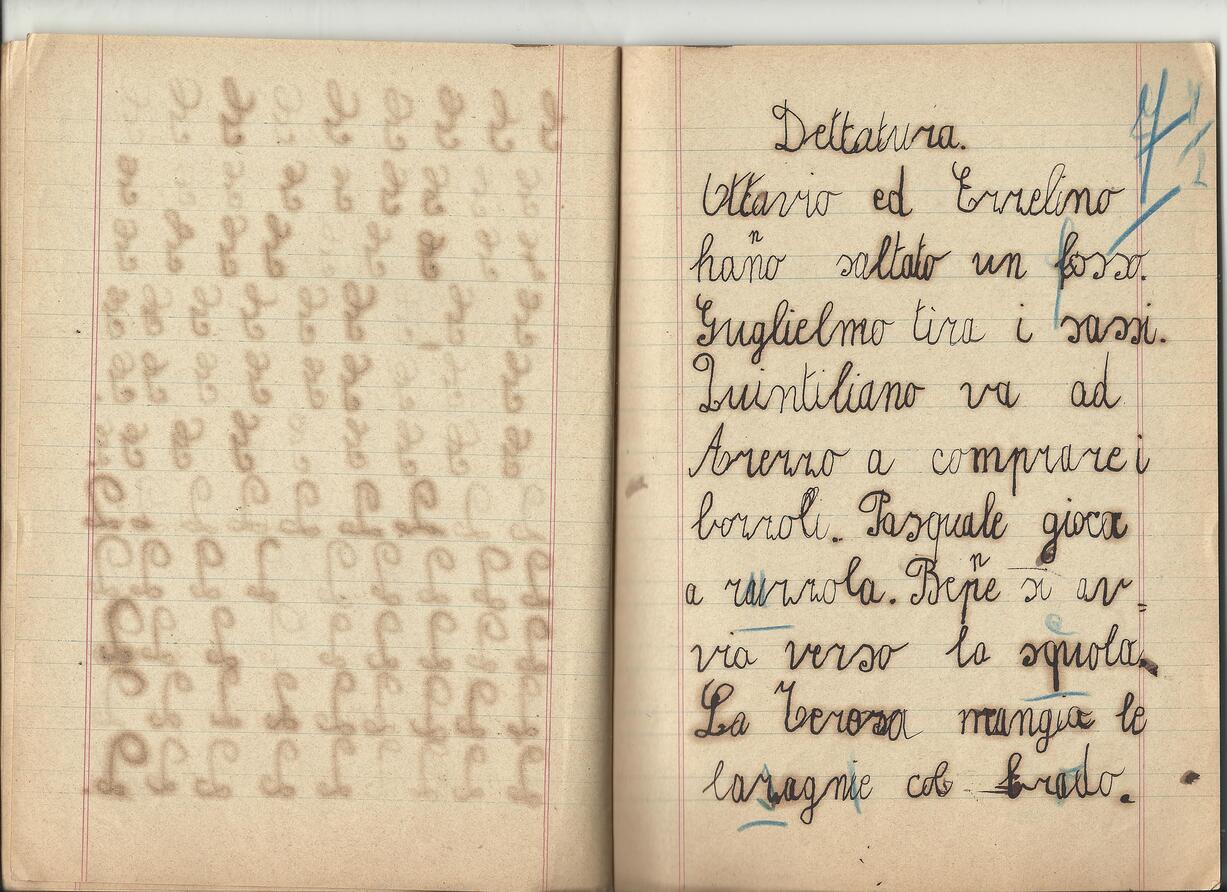 Dettatura.
Ottavio ed Errelino
hanno saltato un fosso.
Guglielmo tira i sassi.
Quintiliano va ad
Arezzo a comprare i
bozzoli. Pasquale gioca
a ruzzola. Beppe si av=
via verso la squola.
La Teresa mangia le
lazagnie col brado.
7 1/2